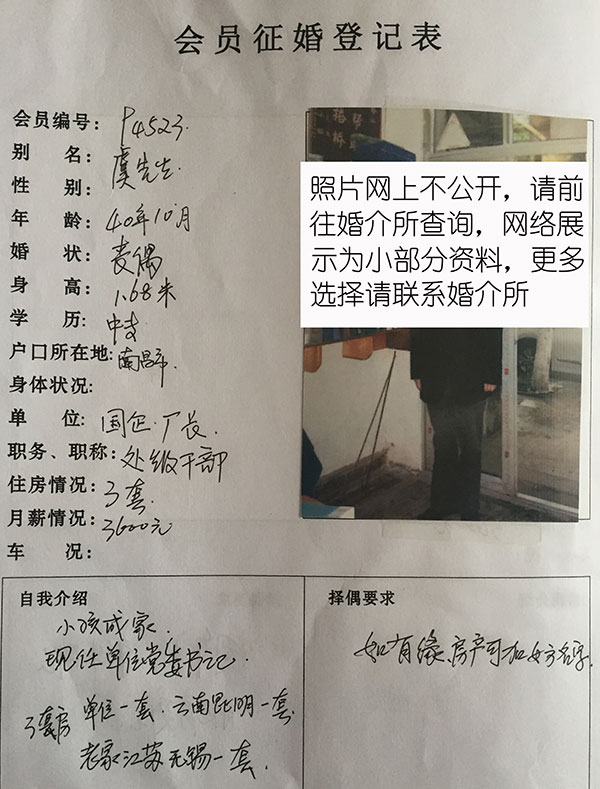 会员征婚登记表
会员编号: P4523.
别 名: 虞先生.
性 别:
年 龄: 40年10月
婚 状: 丧偶
身 高: 1.68米
学 历: 中专
户口所在地: 南昌市.
身体状况:
单 位: 国企.厂长.
职务、职称: 处级干部
住房情况: 3套.
月薪情况: 3600元
车 况:
照片网上不公开，请前
往婚介所查询，网络展
示为小部分资料，更多
选择请联系婚介所
自我介绍
小孩成家.
现任单位党委书记.
3套房 单位一套.云南昆明一套.
老家江苏无锡一套.
择偶要求
如有缘、房产可加女方名字.